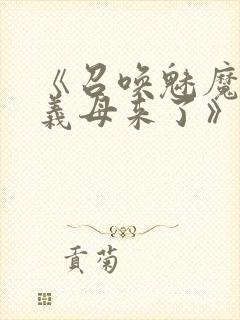 《召唤魅魔
義母来了》
贡菊